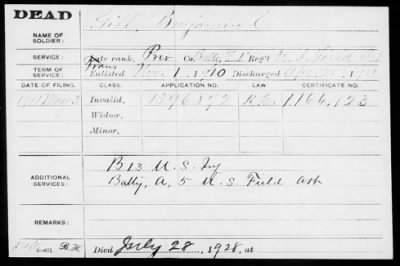 DEAD
NAME OF SOLDIER: Benjamin C
SERVICE: Late rank, Priv Co. Batty, Reg't U.S. Field
TERM OF SERVICE: Trans Enlisted Nov. 1, 1910 Discharged
DATE OF FILING. CLASS. APPLICATION NO. LAW. CERTIFICATE NO.
May 3 Invalid, 1396892 1,166,123
Widow,
Minor,
ADDITIONAL SERVICES: B 13 U.S. Inf
Batty, A, 5 U.S. Field Art
REMARKS:
Died July 28, 1928, at